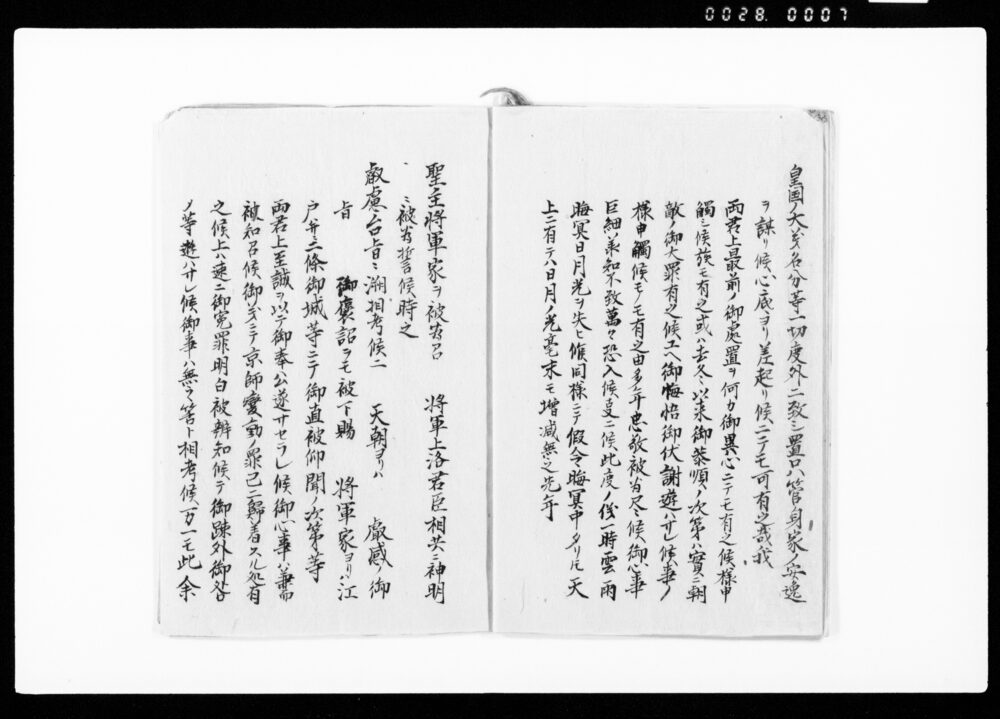 0028. 0007
皇国ノ大義名分等一切度外ニ致シ置只管身家ノ安逸
ヲ謀リ候心底ヨリ差起リ候ニテモ可有之哉我
両君上最前ノ御處置ヲ何カ御異心ニテモ有之候様申
觸シ候族モ有之或ハ去冬以来御恭順ノ次第ハ實ニ朝
敵ノ御大罪有之候工ヘ御悔悟御伏謝遊ハサレ候事ノ
様申觸候モノモ有之由多年忠敬被為尽候御心事
巨細ノ承知不致萬々恐入候夏ニ候此度ノ儀一時雲雨
晦冥日月光ヲ失ヒ候同様ニテ假令晦冥中タリトモ天
上ニ有テハ日月ノ光毫末モ増減無之先年
聖主将軍家ヲ被為召 将軍上洛君臣相共ニ神明
ニ被為誓候時之
叡慮台旨ニ溯相考候ニ 天朝ヨリハ 叡感ノ御
旨 御褒詔ヲモ被下賜 将軍家ヨリハ江
戸并二條御城等ニテ御直被仰聞ノ次第等
両君上至誠ヲ以テ御奉公遂サセラレ候御心事ハ兼而
被知召候御義ニテ京師変動ノ罪己ニ歸着スル処有
之候上ハ速ニ御冤罪明白被辨知候テ御疎外御咎
ノ等遊ハサレ候御事ハ無之筈ト相考候万一モ此余